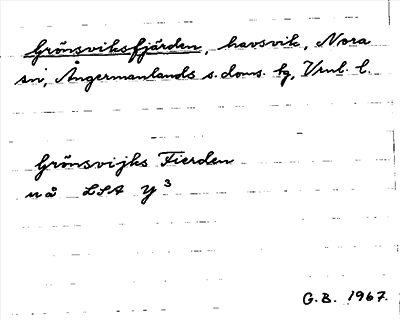 Grönsviksfjärden, havsvik, Nora
sn, Ångermanlands s. doms. tg, Vrnl. l.
Grönsvijks Fierden
u å LSA Y 3
G.B. 1967.